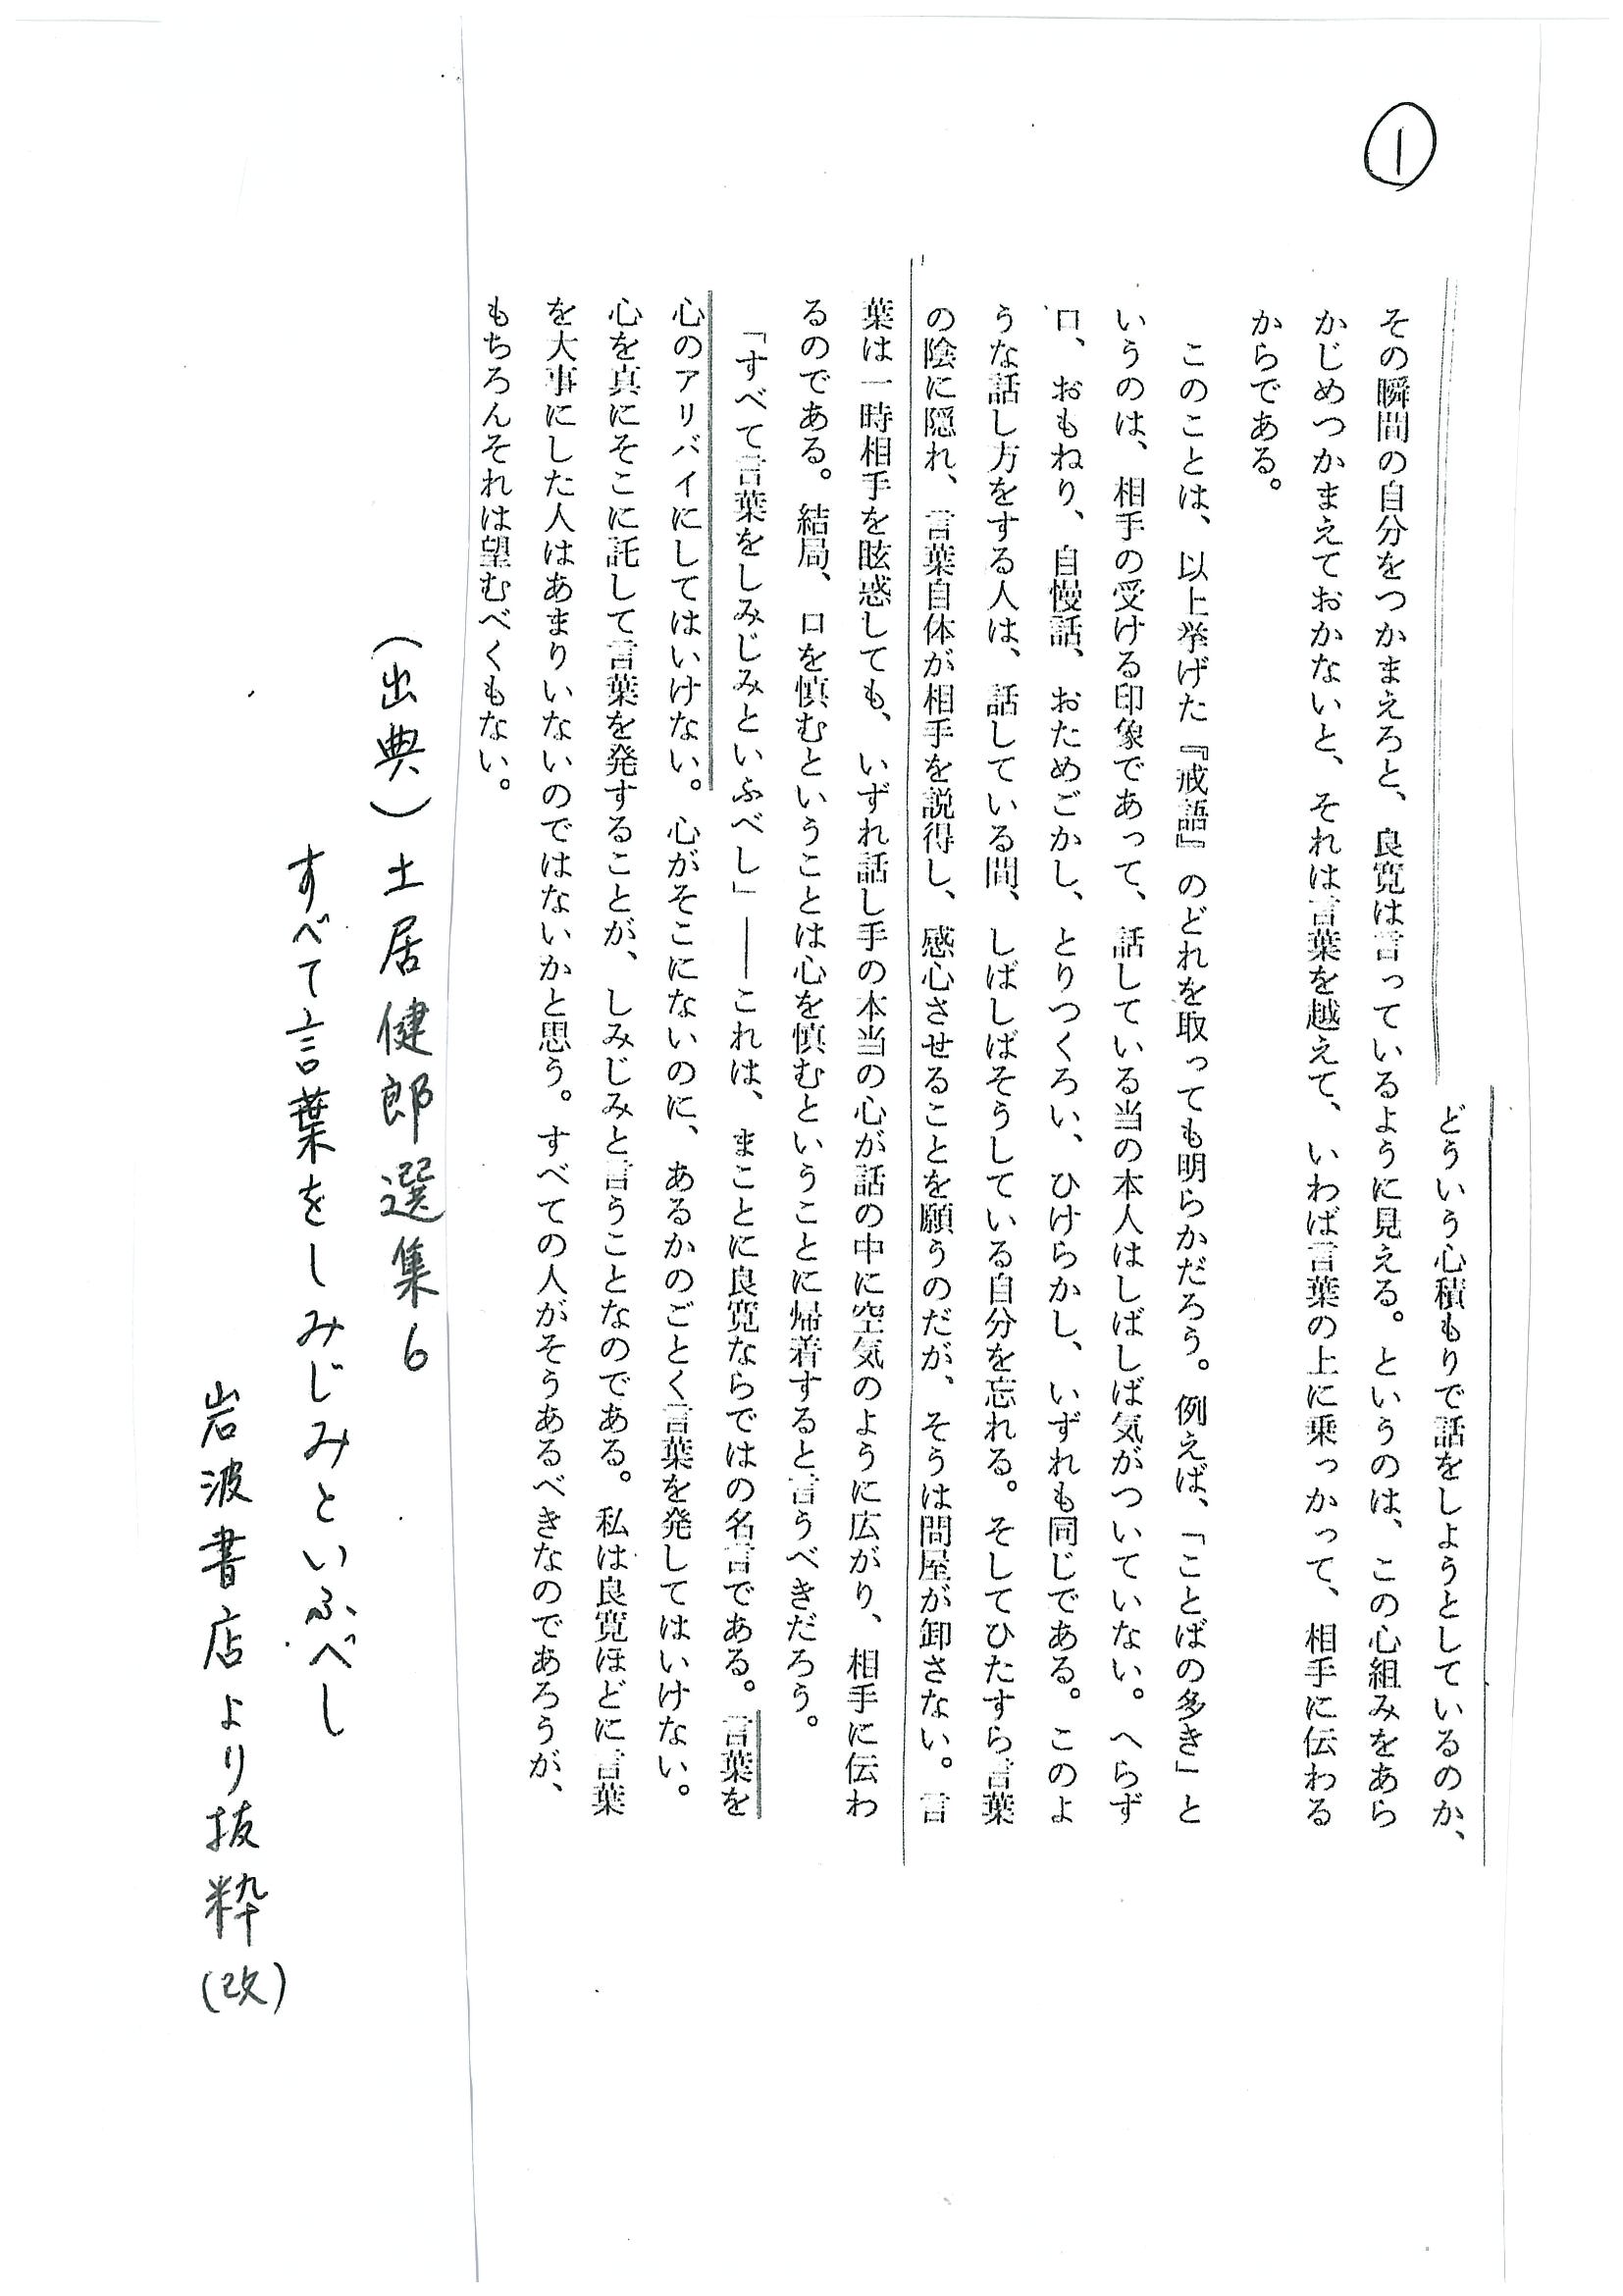 ①
どういう心積もりで話をしようとしているのか、
その瞬間の自分をつかまえろと、良寛は言っているように見える。というのは、この心組みをあら
かじめつかまえておかないと、それは言葉を越えて、いわば言葉の上に乗っかって、相手に伝わる
からである。
このことは、以上挙げた『戒語』のどれを取っても明らかだろう。例えば、「ことばの多き」と
いうのは、相手の受ける印象であって、話している当の本人はしばしば気がついていない。へらず
口、おもねり、自慢話、おためごかし、とりつくろい、ひけらかし、いずれも同じである。このよ
うな話し方をする人は、話している間、しばしばそうしている自分を忘れる。そしてひたすら言葉
の陰に隠れ、言葉自体が相手を説得し、感心させることを願うのだが、そうは問屋が卸さない。言
葉は一時相手を眩惑しても、いずれ話し手の本当の心が話の中に空気のように広がり、相手に伝わ
るのである。結局、口を慎むということは心を慎むということに帰着すると言うべきだろう。
「すべて言葉をしみじみといふべし」――これは、まことに良寛ならではの名言である。言葉を
心のアリバイにしてはいけない。心がそこにないのに、あるかのごとく言葉を発してはいけない。
心を真にそこに託して言葉を発することが、しみじみと言うことなのである。私は良寛ほどに言葉
を大事にした人はあまりいないのではないかと思う。すべての人がそうあるべきなのであろうが、
もちろんそれは望むべくもない。
（出典）土居健郎選集6
すべて言葉をしみじみといふべし
岩波書店より抜粋（改）